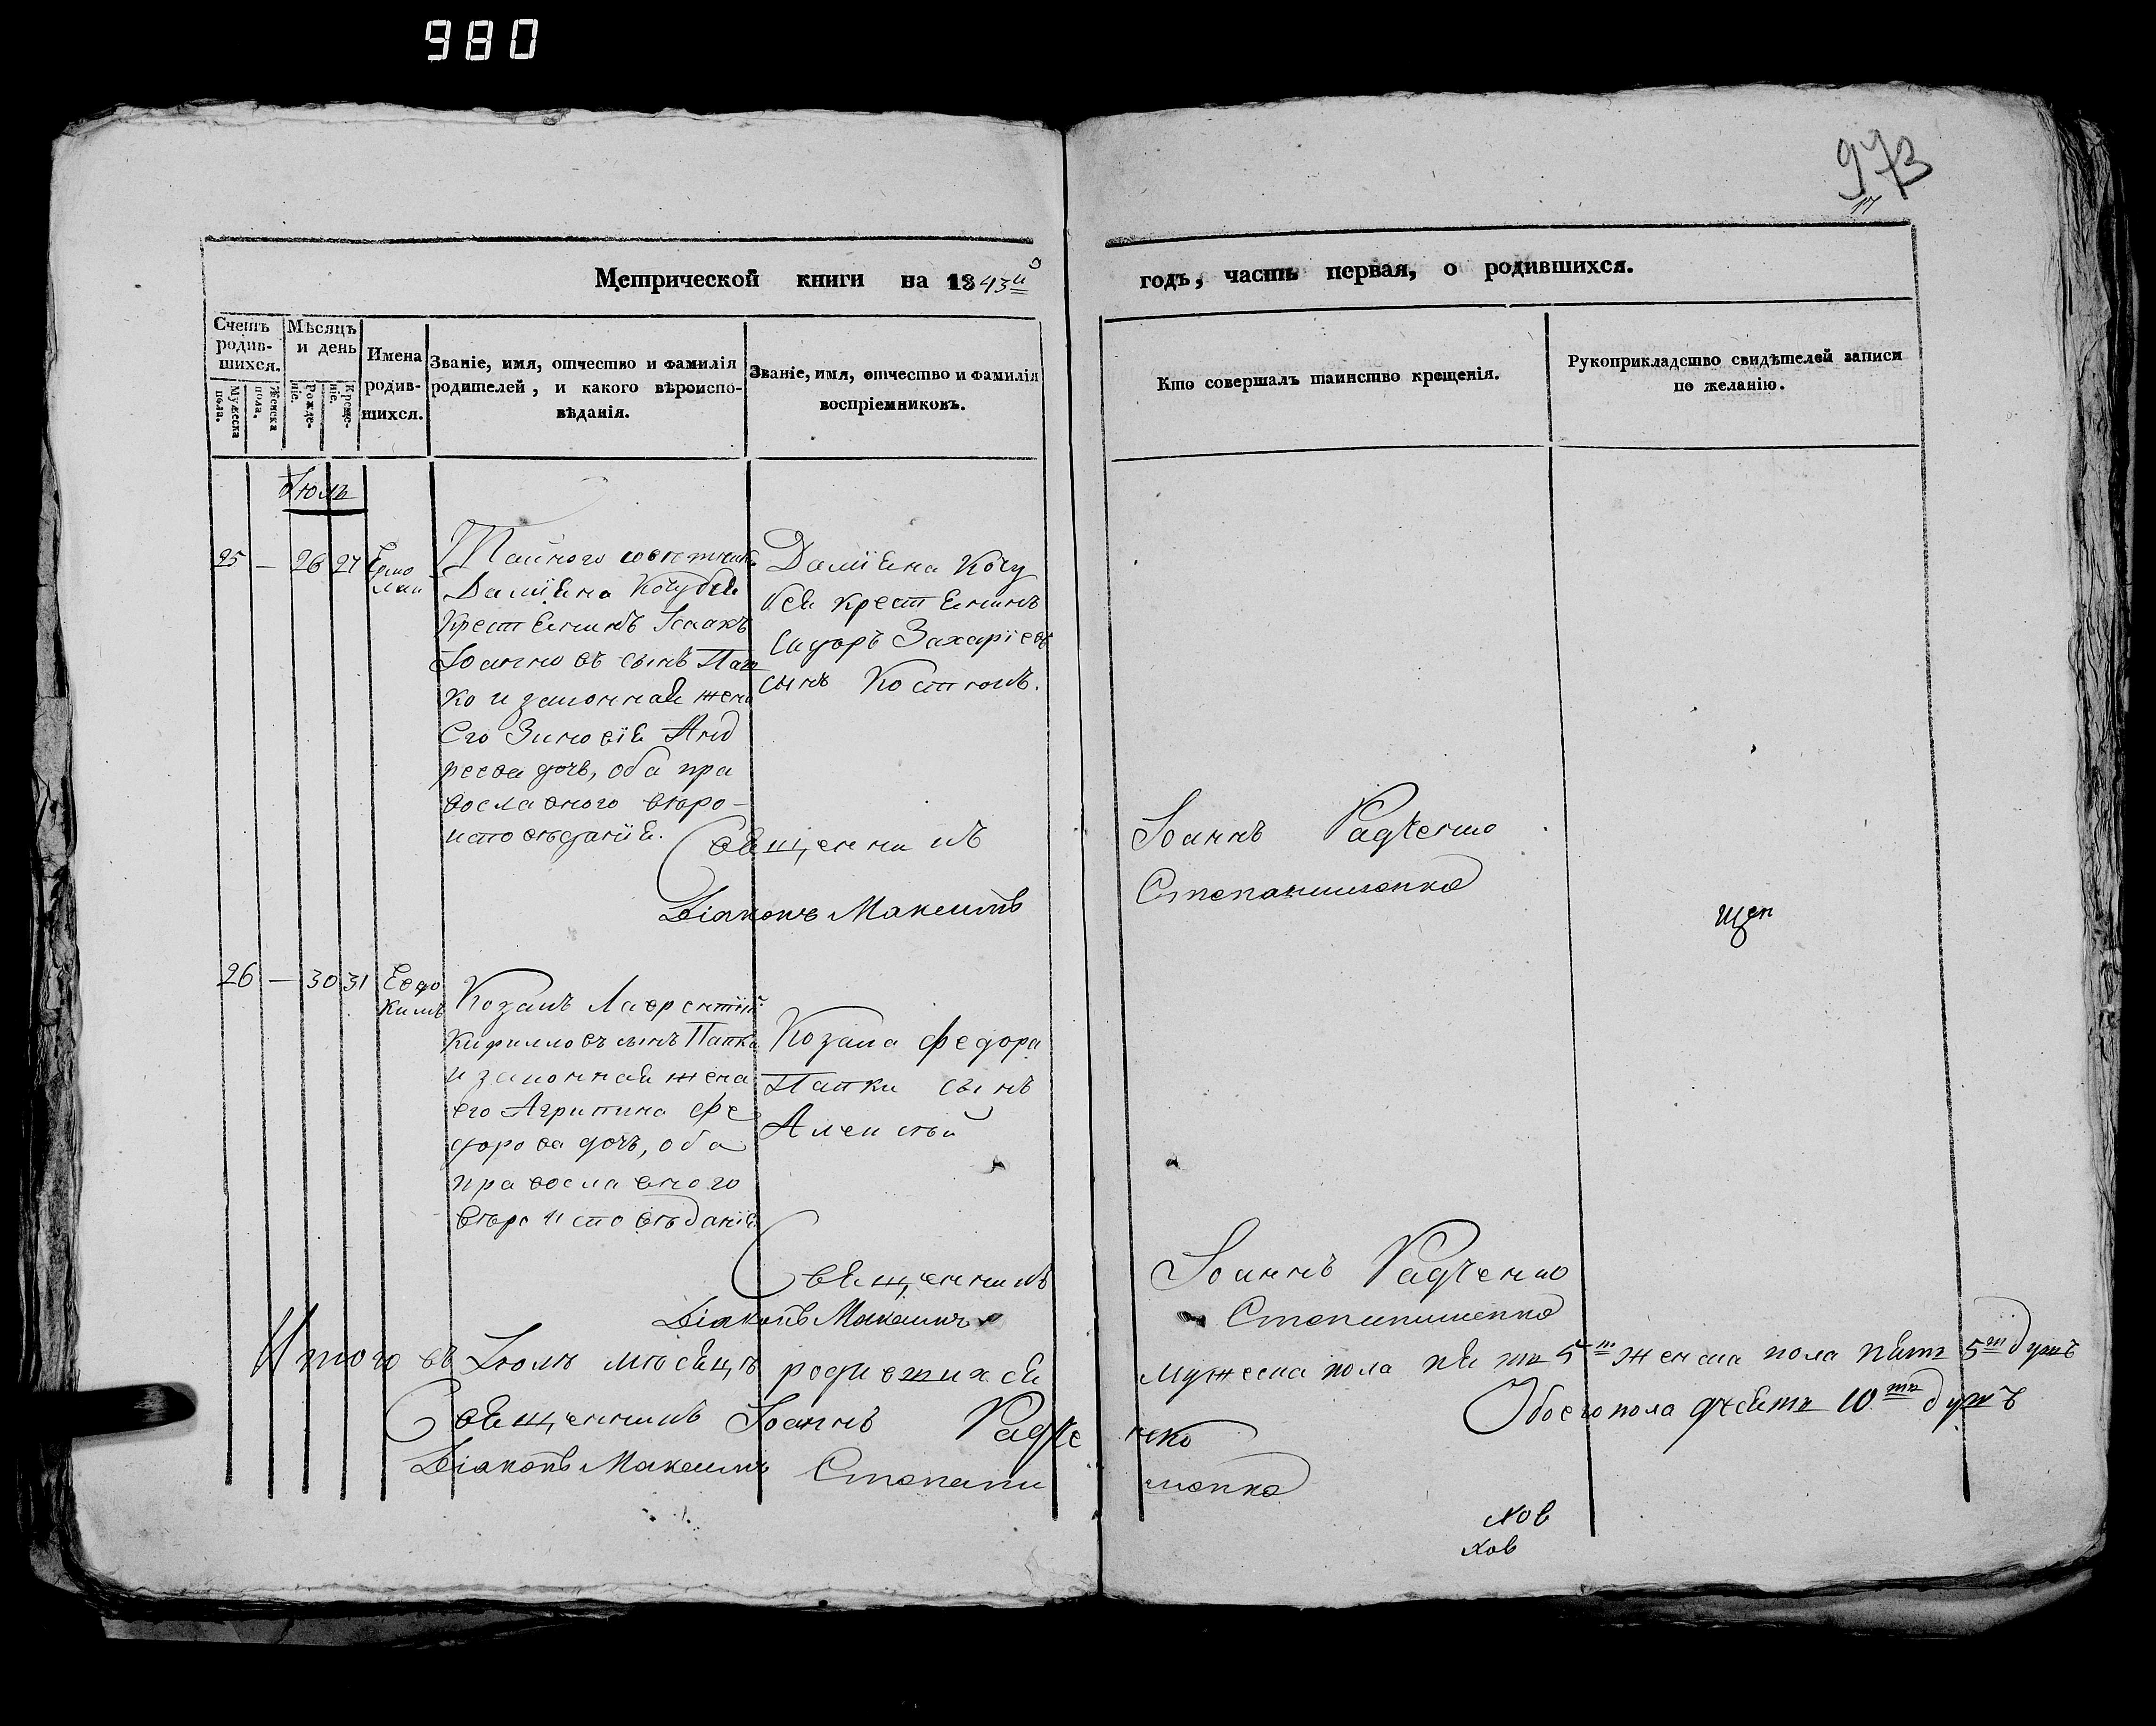 980
973
17
Метрической книги на 1843й
годъ, часть первая, о родившихся.
Счетъ родив-шихся.
Мужеска пола.
Женска пола.
Мѣсяцъ и день
Рожде-ніе.
Креще-ніе.
Имена родив-шихся.
Званіе, имя, отчество и фамилія
родителей, и какого вѣроиспо-
вѣданія.
Званіе, имя, отчество и фамилія
воспріемниковъ.
Кто совершалъ таинство крещенія.
Рукоприкладство свидѣтелей записи
по желанію.
Іюль
25 — 26 27
Ермо
лай
Тайного советника
Даміяна Кочубея
Крестянинъ Исаакъ
Іоанновъ сынъ Пап
ко и законная жена
Его Зиновія Анд
реева дочь, оба пра
вославного вѣро-
исповѣданія.
Даміяна Кочу
бея крестянинъ
Сидоръ Захаріевъ
сынъ Костюкъ.
Священникъ
Іоаннъ Радченко
Діаконъ Максимъ
Степанишенко
щен
26 — 30 31
Евдо
кимъ
Козакъ Лаврентій
Кирилловъ сынъ Папка
и законная жена
его Агрипина Фе
дорова дочь, оба
православного
вѣроисповѣданія
Козака Федора
Папки сынъ
Алексѣй
Священникъ
Іоаннъ Радченко
Діаконъ Максимъ
Степанишенко
Итого въ Іюлѣ мѣсяцѣ родившихся мужеска пола пять 5ть женска пола пять 5ть душъ
Обоего пола десять 10ть душъ
Священникъ Іоаннъ Радченко
Діаконъ Максимъ Степанишенко
ков
ков